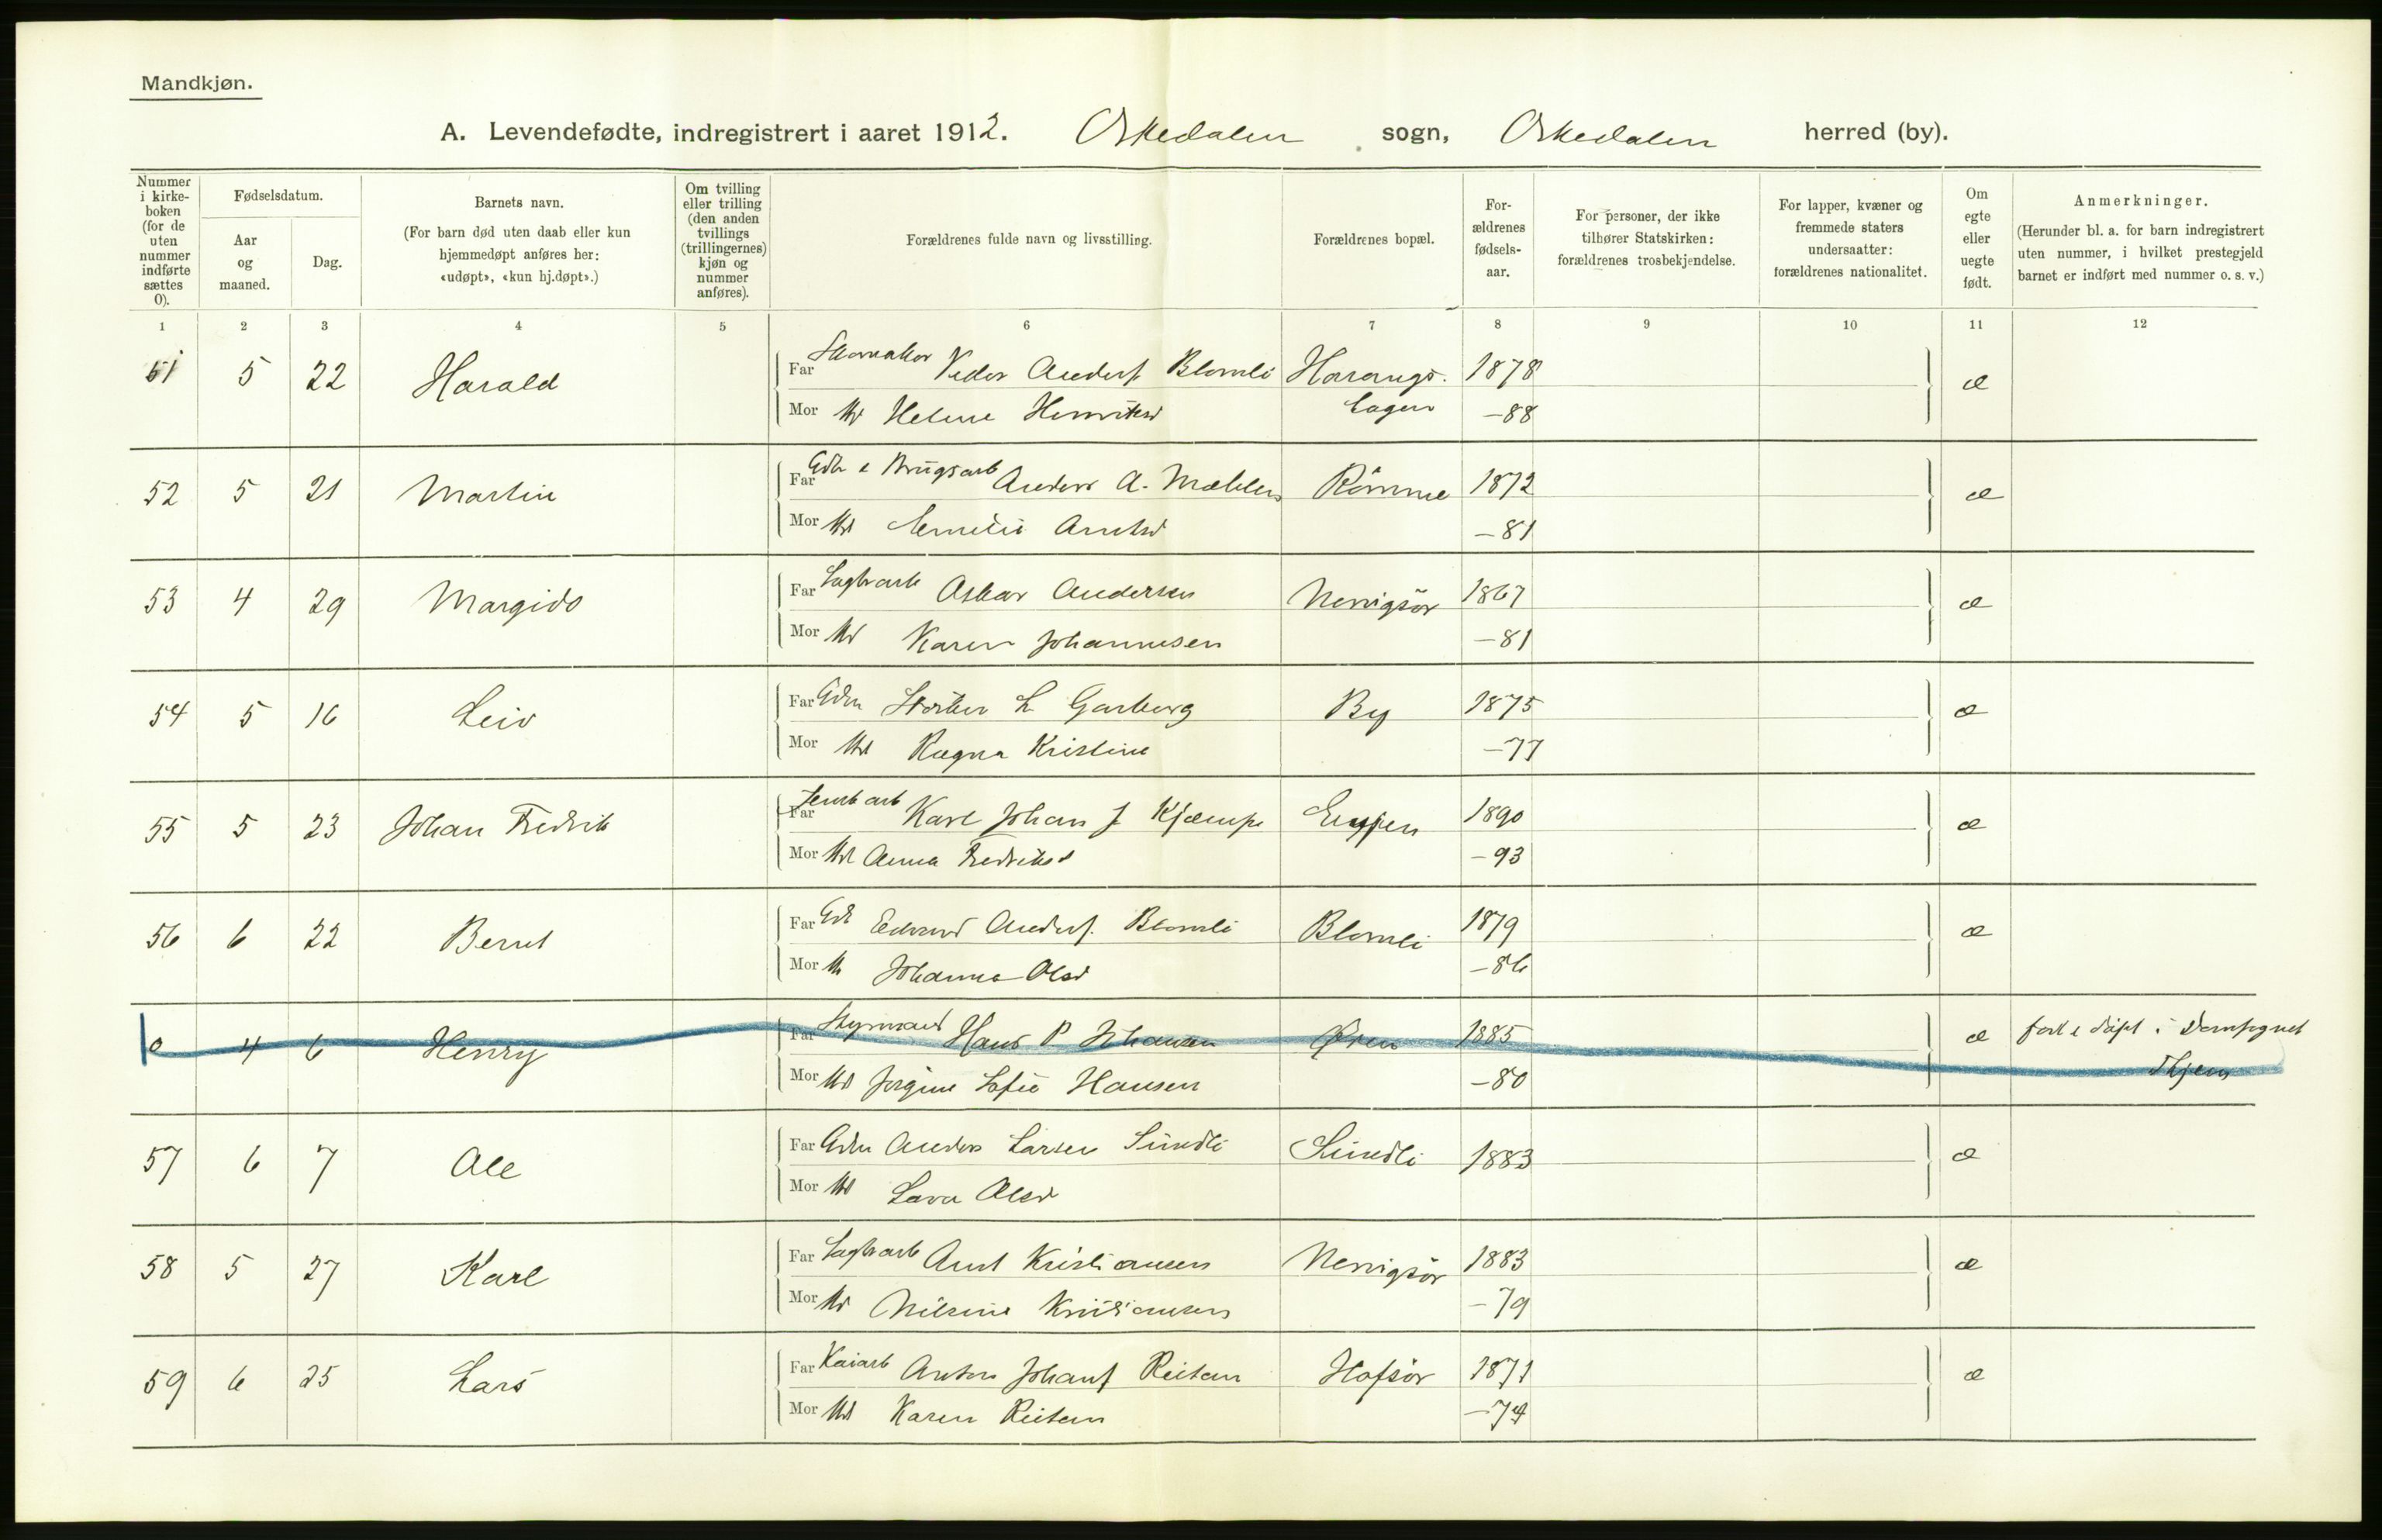 Mandkjøn.
A. Levendefødte, indregistrert i aaret 1912. Orkedalen sogn, Orkedalen herred (by).
Nummer i kirke-boken (for de uten nummer indførte sættes 0).
Fødselsdatum.
Aar og maaned.
Dag.
Barnets navn.
(For barn død uten daab eller kun hjemmedøpt anføres her: «udøpt», «kun hj.døpt».)
Om tvilling eller trilling (den anden tvillings (trillingernes) kjøn og nummer anføres).
Forældrenes fulde navn og livsstilling.
Forældrenes bopæl.
For-ældrenes fødsels-aar.
For personer, der ikke tilhører Statskirken: forældrenes trosbekjendelse.
For lapper, kvæner og fremmede staters undersaatter: forældrenes nationalitet.
Om egte eller uegte født.
Anmerkninger.
(Herunder bl. a. for barn indregistrert uten nummer, i hvilket prestegjeld barnet er indført med nummer o. s. v.)
1 2 3 4 5 6 7 8 9 10 11 12
51 5 22 Harald Far Skomaker Peder Anders. Blomli Harangs. 1878 æ
Mor Helene Henriksd hagen –88
52 5 21 Martin Far Gdbr & Brugsarb Anders A. Mæhlen Römme 1872 æ
Mor Emelie Arntsd –81
53 4 29 Margido Far Sagbrarb Oskar Andersen Nerrigsör 1867 æ
Mor Karen Johannesen –81
54 5 16 Leiv Far Gdbr L Garberg By 1875 æ
Mor Ragna Kristine –77
55 5 23 Johan Fredrik Far Karl Johan J Kjæmpe Engjen 1890 æ
Mor Anna Fredriksd –93
56 6 22 Bernt Far Gdb Edvard Anders. Blomli Blomli 1879 æ
Mor Johanna Olsd –86
0 4 6 Henry Far Styrmand Hans P Johansen Øren 1885 æ født & döpt i Domsognet
Mor Jorgine Sofie Hansen –80 Thjem
57 6 7 Ole Far Gdbr Anders Larsen Sundli Sundli 1883 æ
Mor Lava Olsd
58 5 27 Karl Far Sagbrarb Arnt Kristiansen Nerrigsör 1883 æ
Mor Nilsine Kristiansen –79
59 6 25 Lars Far Kaiarb Anton Johans Reitan Hofsör 1871 æ
Mor Karen Reitan –74